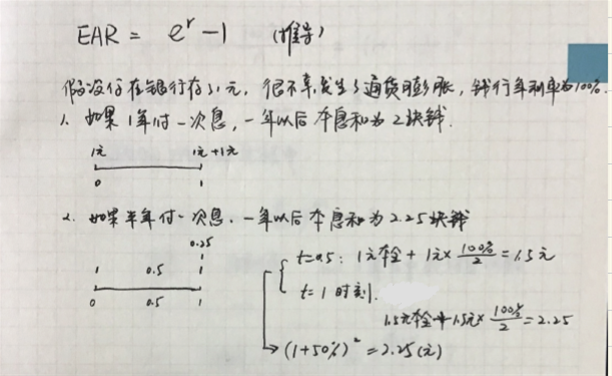 EAR = e^r - 1 (推导)
假设你在银行存了1元，很不幸，发生了通货膨胀，银行年利率为100%.
1. 如果1年付一次息，一年以后本息和为2块钱.
1元 1元+1元
0 1
2. 如果半年付一次息，一年以后本息和为2.25块钱
0.25
1 0.5 1
0 0.5 1
t=0.5: 1元本金 + 1元× 100%/2 = 1.5元
t=1时刻.
1.5元本金+1.5元× 100%/2 = 2.25
(1+50%)² = 2.25(元)